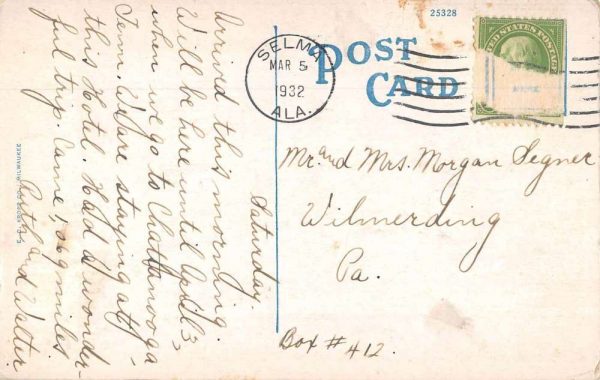 25328
POST
CARD
SELMA
MAR 5
1932
ALA.
UNITED STATES POSTAGE
Saturday.
Arrived this morning.
Will be here until April 3,
when we go to Chattanooga
Tenn. We are staying at
this Hotel. Had a wonder-
ful trip. Came miles
Pat and Walter
Mr and Mrs. Morgan Segner
Wilmerding
Pa.
Box # 412.
MILWAUKEE